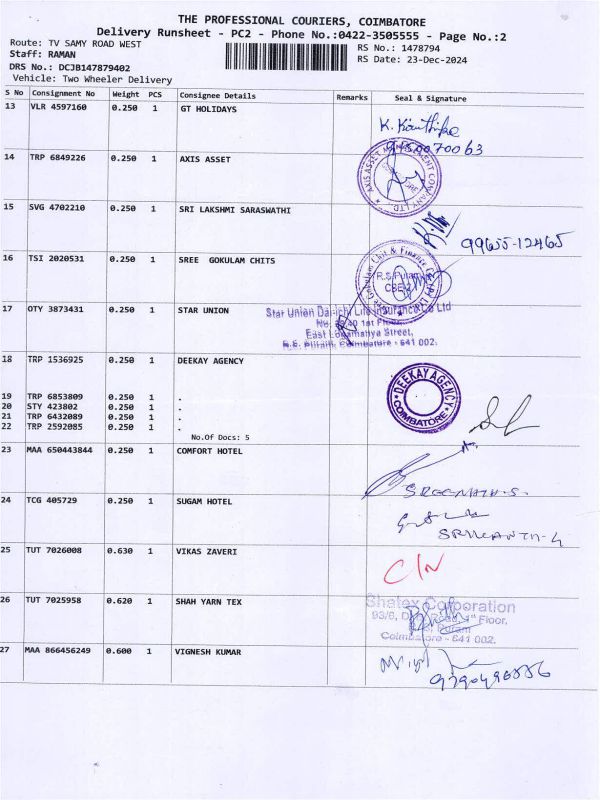 THE PROFESSIONAL COURIERS, COIMBATORE
Delivery Runsheet - PC2 - Phone No.:0422-3505555 - Page No.:2
Route: TV SAMY ROAD WEST
Staff: RAMAN
DRS No.: DCJB147879402
Vehicle: Two Wheeler Delivery
RS No.: 1478794
RS Date: 23-Dec-2024
S No Consignment No Weight PCS Consignee Details Remarks Seal & Signature
13 VLR 4597160 0.250 1 GT HOLIDAYS
14 TRP 6849226 0.250 1 AXIS ASSET
AXIS ASSET MANAGEMENT COMPANY LTD
15 SVG 4702210 0.250 1 SRI LAKSHMI SARASWATHI
99655-12465
16 TSI 2020531 0.250 1 SREE GOKULAM CHITS
Gokulam Chit & Finance
R.S.Puram
CBE-2
17 OTY 3873431 0.250 1 STAR UNION
Star Union Dai-ichi Life Insurance Co Ltd
1st Floor,
East Lokamanya Street,
R.S. Puram, Coimbatore - 641 002.
18 TRP 1536925 0.250 1 DEEKAY AGENCY
DEEKAY AGENCY
COIMBATORE
19 TRP 6853809 0.250 1 .
20 STY 423802 0.250 1 .
21 TRP 6432089 0.250 1 .
22 TRP 2592085 0.250 1 .
No.Of Docs: 5
23 MAA 650443844 0.250 1 COMFORT HOTEL
SREENATH.S.
24 TCG 405729 0.250 1 SUGAM HOTEL
SRIKANTH-G
25 TUT 7026008 0.630 1 VIKAS ZAVERI
C/N
26 TUT 7025958 0.620 1 SHAH YARN TEX
Shatex Corporation
93/6, 1st Floor,
Puram
Coimbatore - 641 002.
27 MAA 866456249 0.600 1 VIGNESH KUMAR